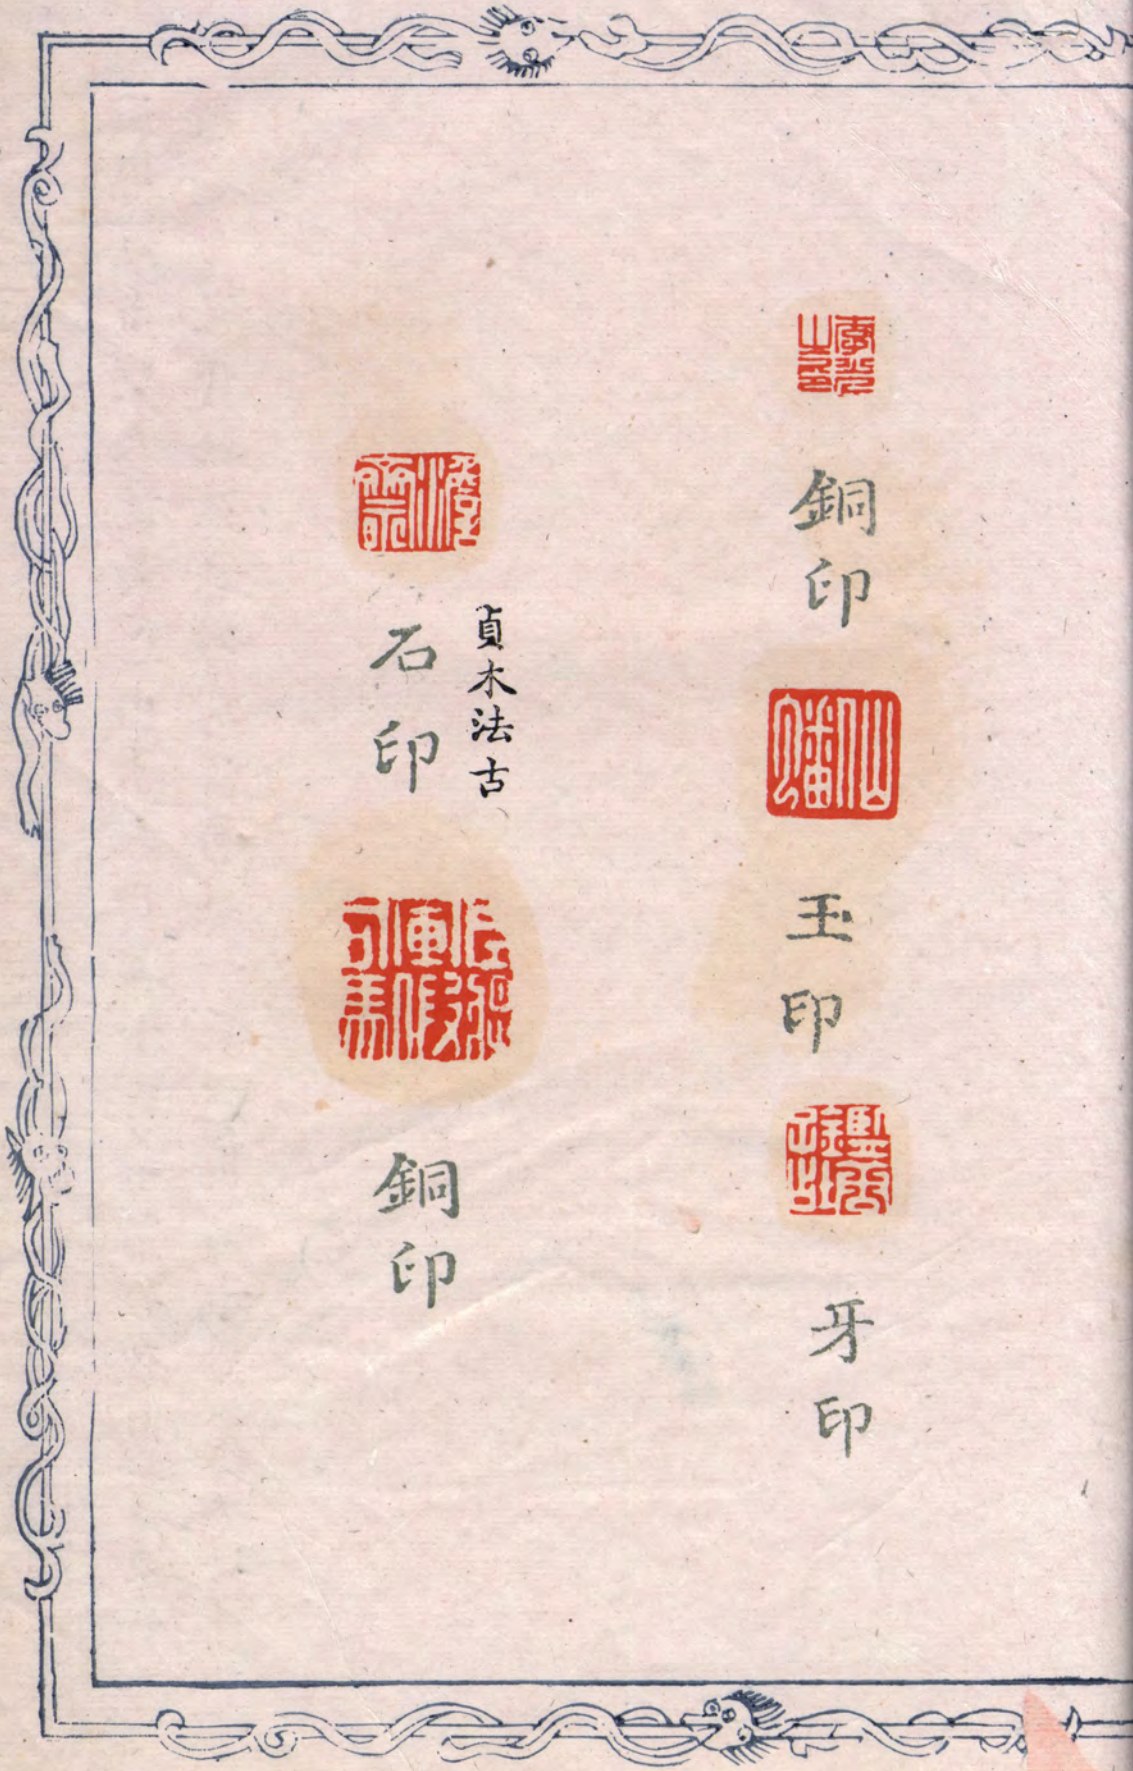 銅印
仙蟠
玉印
牙印
貞木法古
石印
銅印